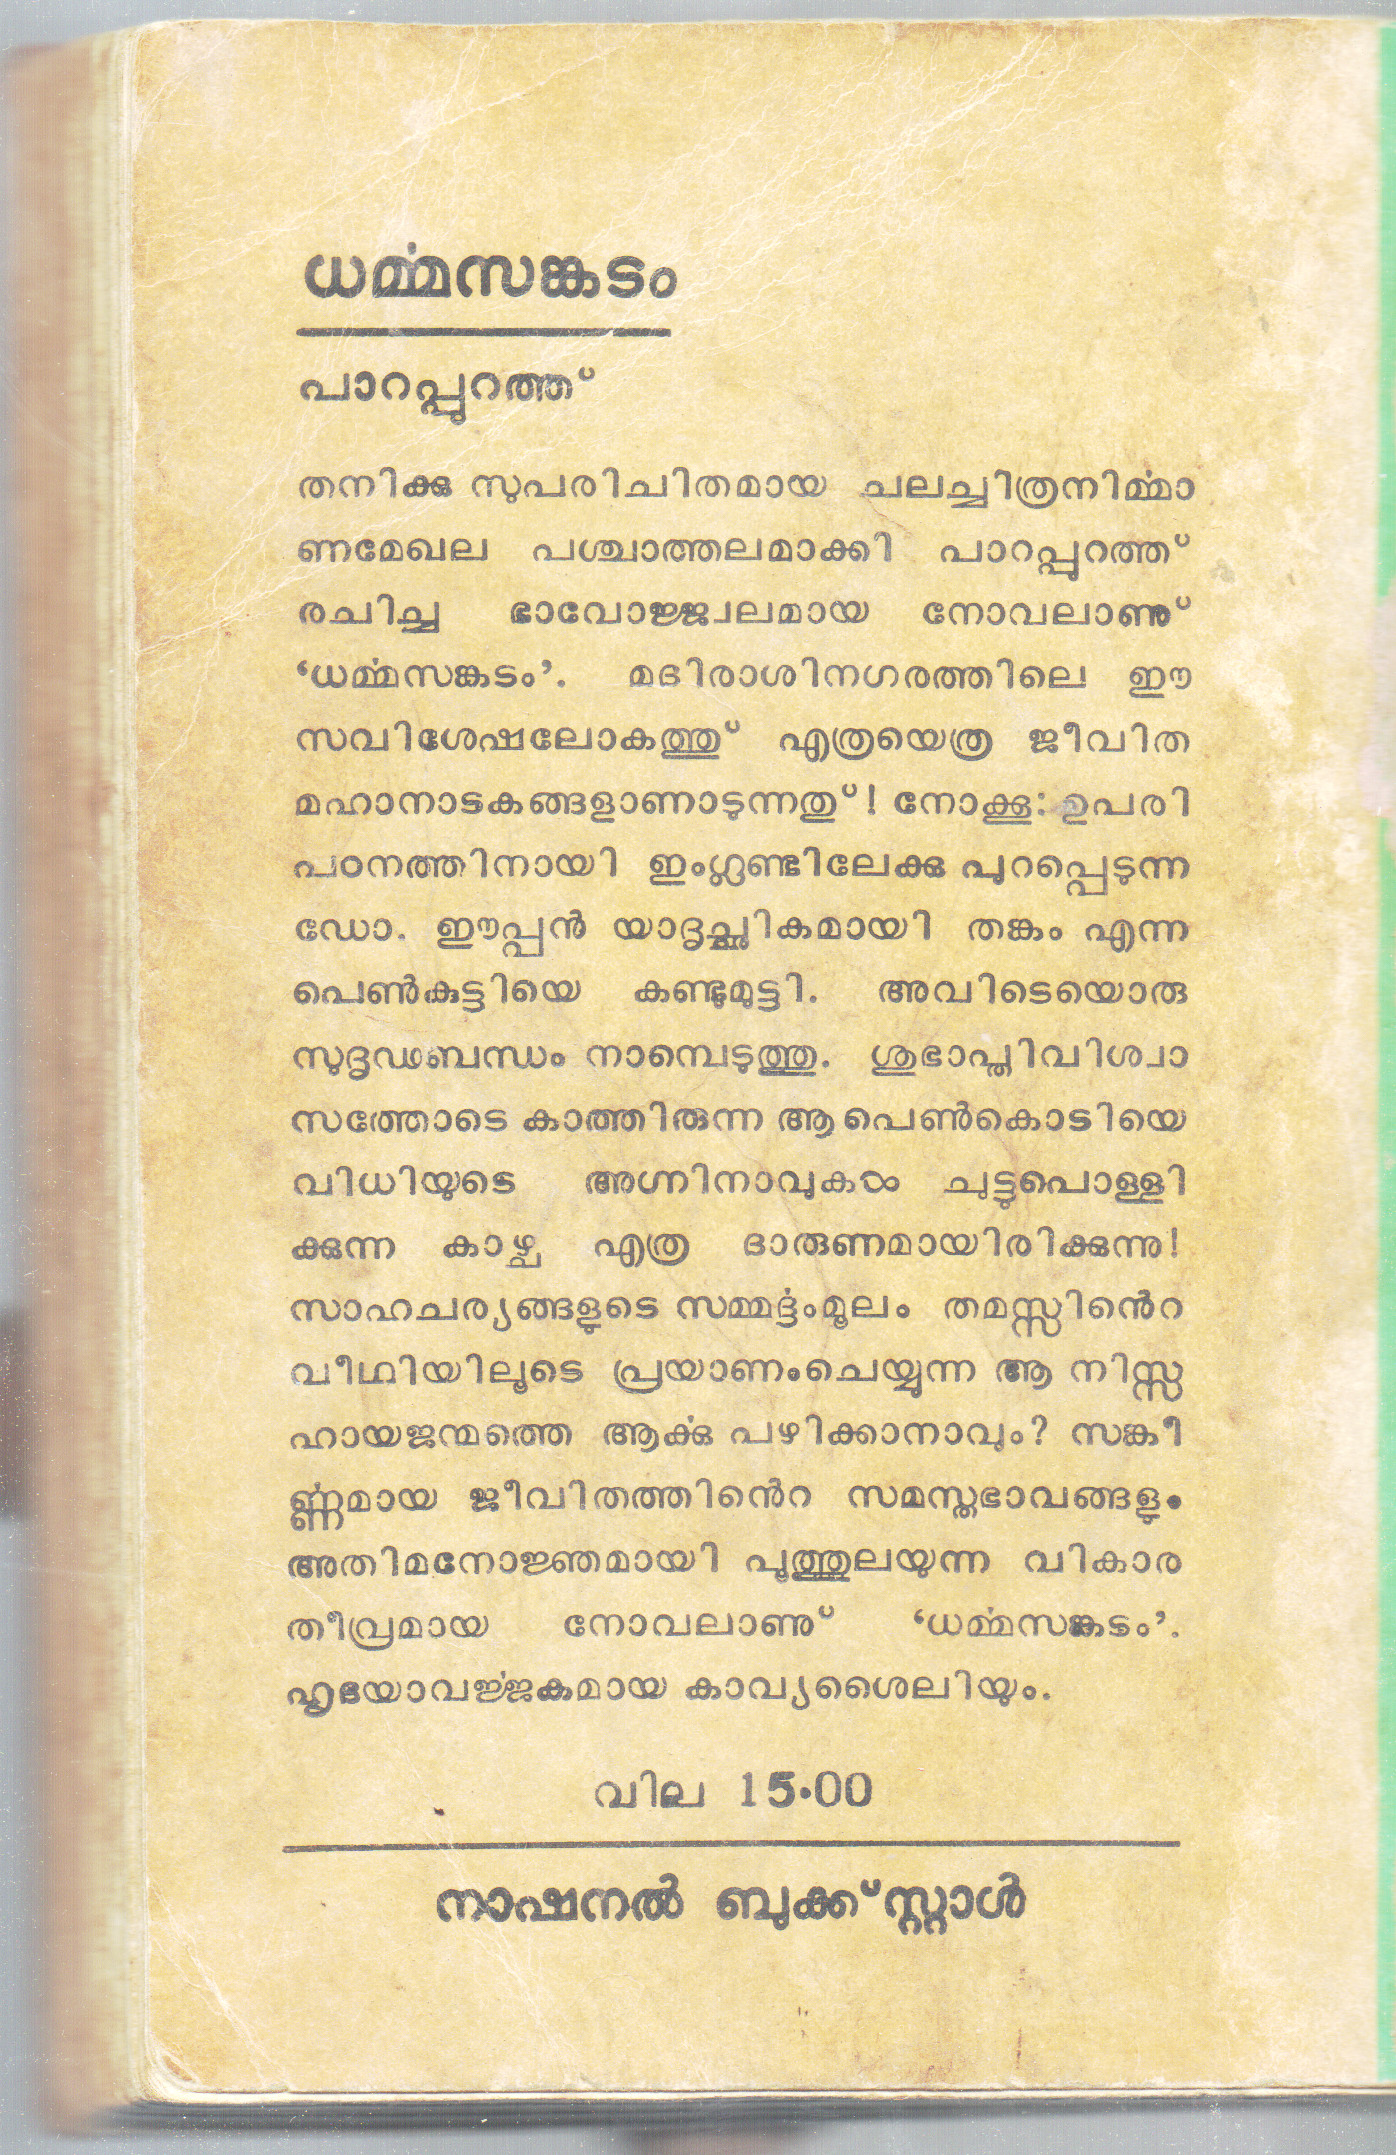 ധൎമ്മസങ്കടം
പാറപ്പുറത്ത്
തനിക്കു സുപരിചിതമായ ചലച്ചിത്രനിൎമ്മാ
ണമേഖല പശ്ചാത്തലമാക്കി പാറപ്പുറത്ത്
രചിച്ച ഭാവോജ്ജ്വലമായ നോവലാണു്
‘ധൎമ്മസങ്കടം’. മദിരാശിനഗരത്തിലെ ഈ
സവിശേഷലോകത്തു് എത്രയെത്ര ജീവിത
മഹാനാടകങ്ങളാണാടുന്നതു്! നോക്കൂ: ഉപരി
പഠനത്തിനായി ഇംഗ്ലണ്ടിലേക്കു പുറപ്പെടുന്ന
ഡോ. ഈപ്പൻ യാദൃച്ഛികമായി തങ്കം എന്ന
പെൺകുട്ടിയെ കണ്ടുമുട്ടി. അവിടെയൊരു
സുദൃഢബന്ധം നാമ്പെടുത്തു. ശുഭാപ്തിവിശ്വാ
സത്തോടെ കാത്തിരുന്ന ആ പെൺകൊടിയെ
വിധിയുടെ അഗ്നിനാവുകൾ ചുട്ടുപൊള്ളി
ക്കുന്ന കാഴ്ച എത്ര ദാരുണമായിരിക്കുന്നു!
സാഹചര്യങ്ങളുടെ സമ്മൎദ്ദംമൂലം തമസ്സിൻെറ
വീഥിയിലൂടെ പ്രയാണംചെയ്യുന്ന ആ നിസ്സ
ഹായജന്മത്തെ ആൎക്കു പഴിക്കാനാവും? സങ്കീ
ൎണ്ണമായ ജീവിതത്തിൻെറ സമസ്തഭാവങ്ങളും
അതിമനോജ്ഞമായി പൂത്തുലയുന്ന വികാര
തീവ്രമായ നോവലാണു് ‘ധൎമ്മസങ്കടം’.
ഹൃദയാവൎജ്ജകമായ കാവ്യശൈലിയും.
വില 15·00
നാഷനൽ ബുക്ക്സ്റ്റാൾ